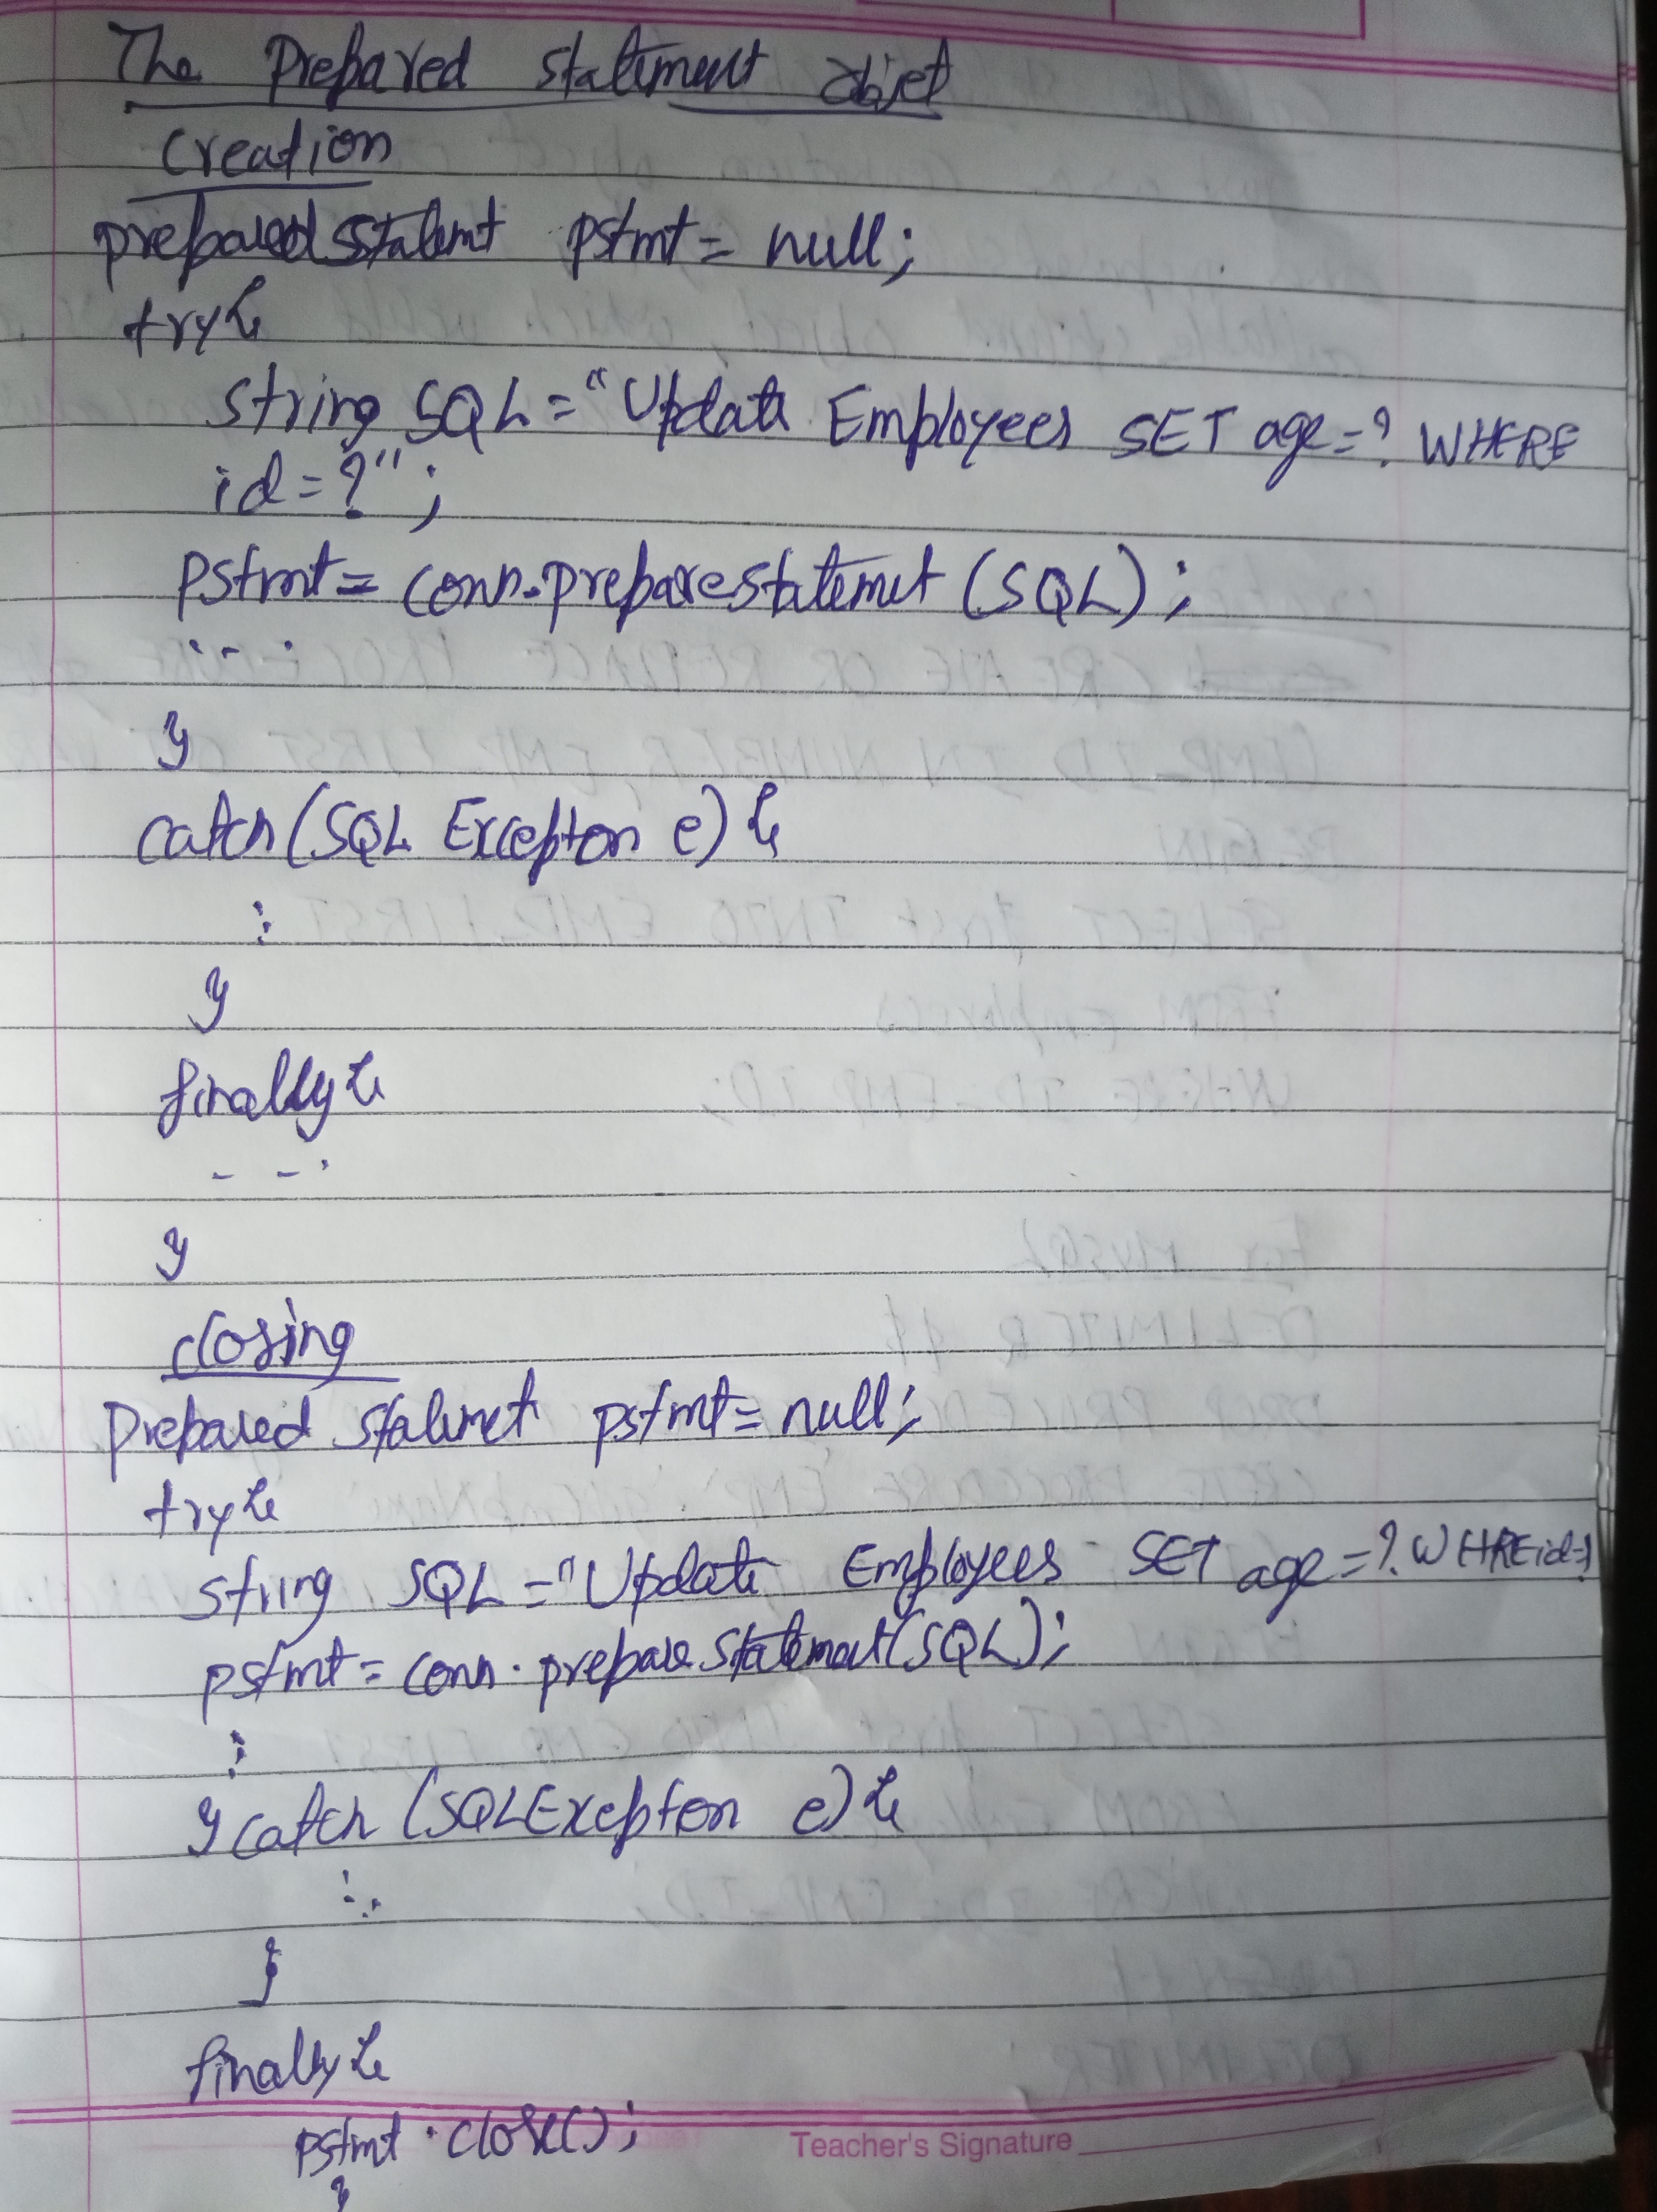 The Prepared statement object
creation
preparedstatemt pstmt = null;
try{
string SQL = "Update Employees SET age=? WHERE
id = ?";
pstmt = conn.preparestatemet (SQL);
...
}
catch (SQL Excepton e) {
:
}
finally {
- - .
}
closing
Prepared statemet pstmt = null;
try {
string SQL = "Update Employees SET age=? WHRE id=?
pstmt = conn.prepare Statement (SQL);
:
} catch (SQLExcepton e) {
:.
}
finally {
pstmt.close();
}
Teacher's Signature